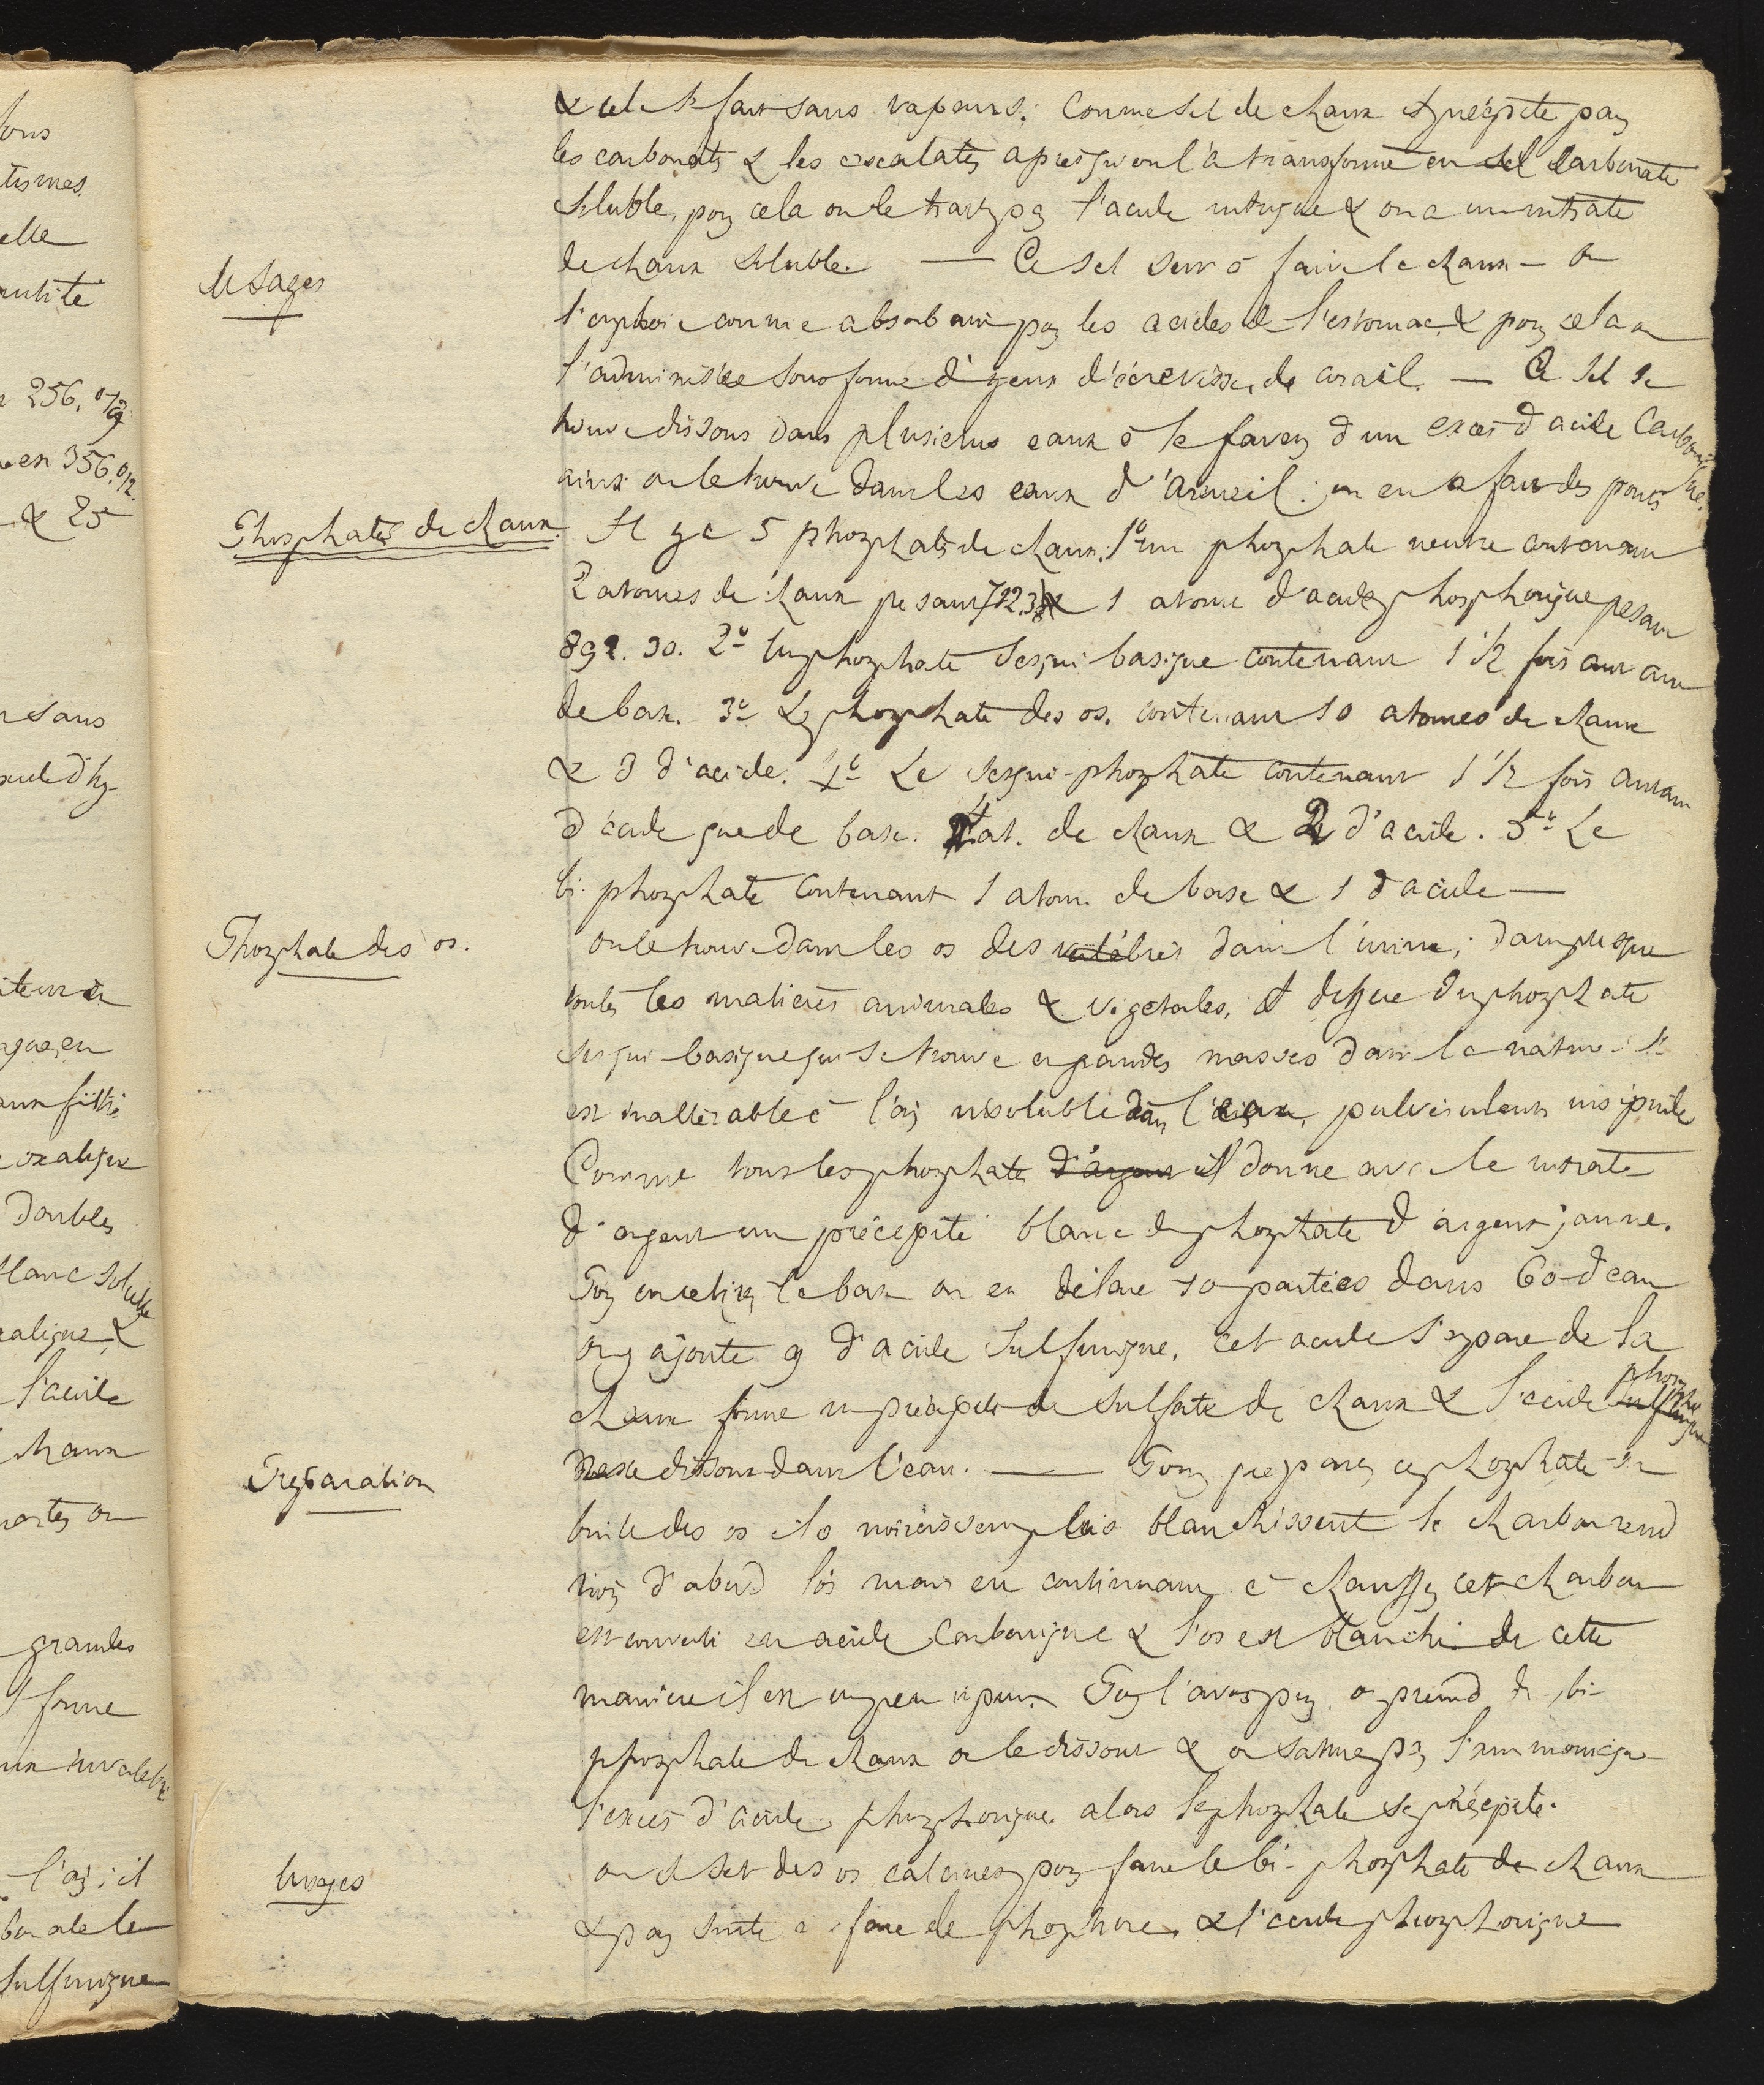 & cela se fait sans vapeurs. Comme sel de chaux est précipité par
les carbonates & les oxalates après qu'on l'a transformé en sel carbonate
soluble, pour cela on le traite par l'acide nitrique & on a un nitrate
Usages
de chaux soluble. — Ce sel sert à faire la chaux — on
l'emploie comme absorbant par les acides de l'estomac & pour cela on
l'administre sous forme d'yeux d'écrevisse, de corail. — Ce sel se
trouve dissous dans plusieurs eaux à la faveur d'un excès d'acide carbonique.
ainsi on le trouve dans les eaux d'arcueil. on en a fait des ponts
Phosphates de chaux.
Il y a 5 phosphates de chaux. 1º un phosphate neutre contenant
2 atomes de chaux pesant 712.3 & 1 atome d'acide phosphorique pesant
892. 30. 2º Un phosphate sesqui basique contenant 1 1/2 fois autant
de base. 3º Le phosphate des os. contenant 10 atomes de chaux
& 3 d'acide. 4º Le sesqui-phosphate contenant 1 1/2 fois autant
d'acide que de base. 4 at. de chaux & 2 d'acide. 5º Le
bi-phosphate contenant 1 atome de base & 1 d'acide —
Phosphate des os.
on le trouve dans les os des vertébrés dans l'urine, dans presque
toutes les matières animales & végétales, il diffère du phosphate
sesqui-basique qui se trouve en grandes masses dans la nature. Il
est inaltérable à l'air insoluble dans l'eau, pulvérulent insipide
Comme tous les phosphates d'argent il donne avec le nitrate
d'argent un précipité blanc de phosphate d'argent jaune.
Pour en retirer la base on en délaie 10 parties dans 60 d'eau
on y ajoute 9 d'acide sulfurique, cet acide s'empare de la
chaux forme un précipité de sulfate de chaux & l'acide sulfurique phosphorique
reste dissous dans l'eau. — Pour préparer ce phosphate on
Préparation
brûle des os ils noircissent puis blanchissent le charbon rend
noir d'abord l'os mais en continuant à chauffer cet charbon
est converti en acide carbonique & l'os est blanchi de cette
manière il est un peu impur. Pour l'avoir pur on prend du bi-
phosphate de chaux on le dissout & on sature par l'ammoniaque
l'excès d'acide phosphorique alors le phosphate se précipite.
Usages
on se sert des os calcinés pour faire le bi-phosphate de chaux
& par suite à faire le phosphore & l'acide phosphorique